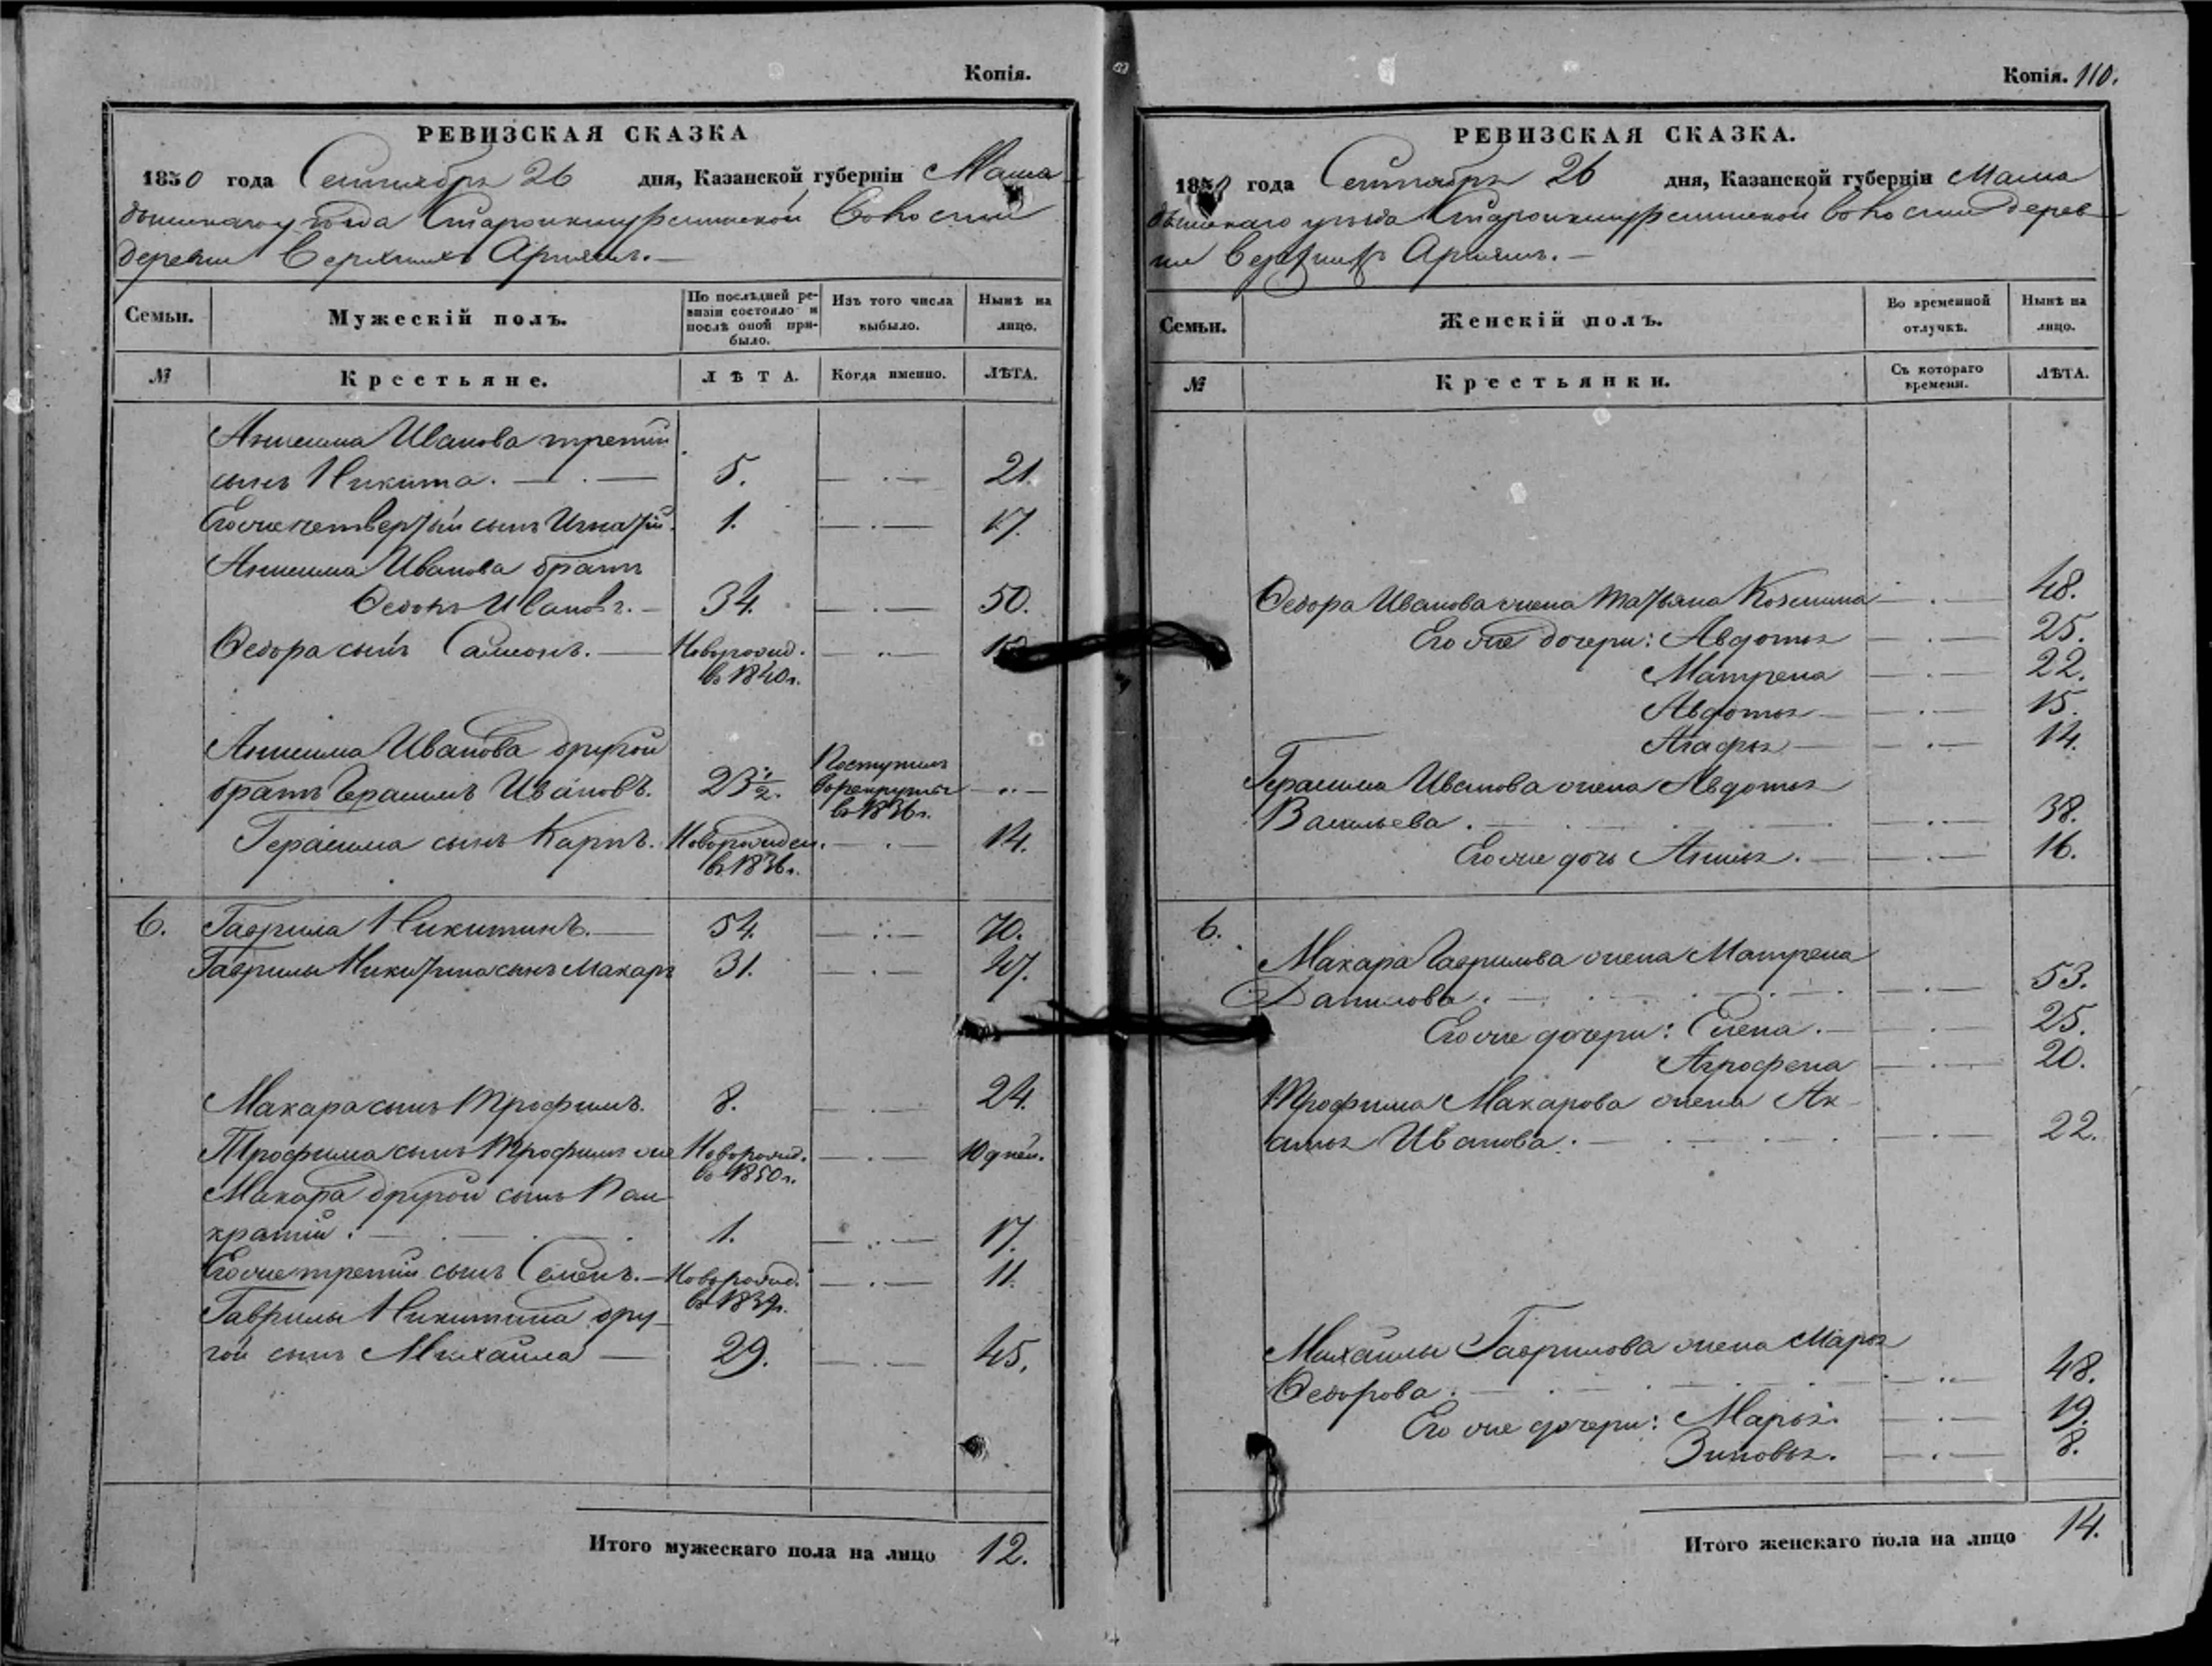 Копія.
РЕВИЗСКАЯ СКАЗКА
1850 года Сентября 26 дня, Казанской губерніи Мама
дышскаго уѣзда Старокишурсинской Волости
деревни Верхнихъ Арняшъ.
Семьи.
Мужескій полъ.
По послѣдней ре-
визіи состояло и
послѣ оной при-
было.
Изъ того числа
выбыло.
Нынѣ на
лицо.
№
Крестьяне.
ЛѢТА.
Когда именно.
ЛѢТА.
Анисима Иванова третій
сынъ Никита. 5. 21.
Егоже четвертый сынъ Игнатій. 1. 17.
Анисима Иванова братъ
Ѳедоръ Ивановъ. 34. 50.
Ѳедора сынъ Самсонъ. Новорожд.
въ 1840г.
Анисима Иванова другой
братъ Герасимъ Ивановъ. 23½. Поступилъ
въ рекруты
въ 1836г.
Герасима сынъ Карпъ. Новорожден. 14.
въ 1836г.
6. Гаврила Никитинъ. 54. 70.
Гаврилы Никитина сынъ Макаръ 31. 47.
Макара сынъ Трофимъ. 8. 24.
Трофима сынъ Трофимъ же Новорожд. 10 дней.
въ 1850г.
Макара другой сынъ Пан
кратій. 1. 17.
Егоже третій сынъ Семенъ. Новорожд. 11.
въ 1839г.
Гаврилы Никитина дру-
гой сынъ Михаила 29. 45.
Итого мужескаго пола на лицо 12.
Копія. 110.
РЕВИЗСКАЯ СКАЗКА.
1850 года Сентября 26 дня, Казанской губерніи Мама
дышскаго уѣзда Старокишурсинской волости дерев-
ни Верхнихъ Арняшъ.
Семьи.
Женскій полъ.
Во временной
отлучкѣ.
Нынѣ на
лицо.
№
Крестьянки.
Съ котораго
времени.
ЛѢТА.
Ѳедора Иванова жена Татьяна Козмина 48.
Его же дочери: Авдотья 25.
Матрена 22.
Авдотья 15.
Агафья 14.
Герасима Иванова жена Авдотья
Васильева. 38.
Егоже дочь Анисья. 16.
6.
Макара Гаврилова жена Матрена
Данилова. 53.
Егоже дочери: Елена. 25.
Агрофена 20.
Трофима Макарова жена Ак-
синья Иванова. 22.
Михаилы Гаврилова жена Марья
Ѳедорова. 48.
Его же дочери: Марья. 19.
Зиновья. 8.
Итого женскаго пола на лицо 14.